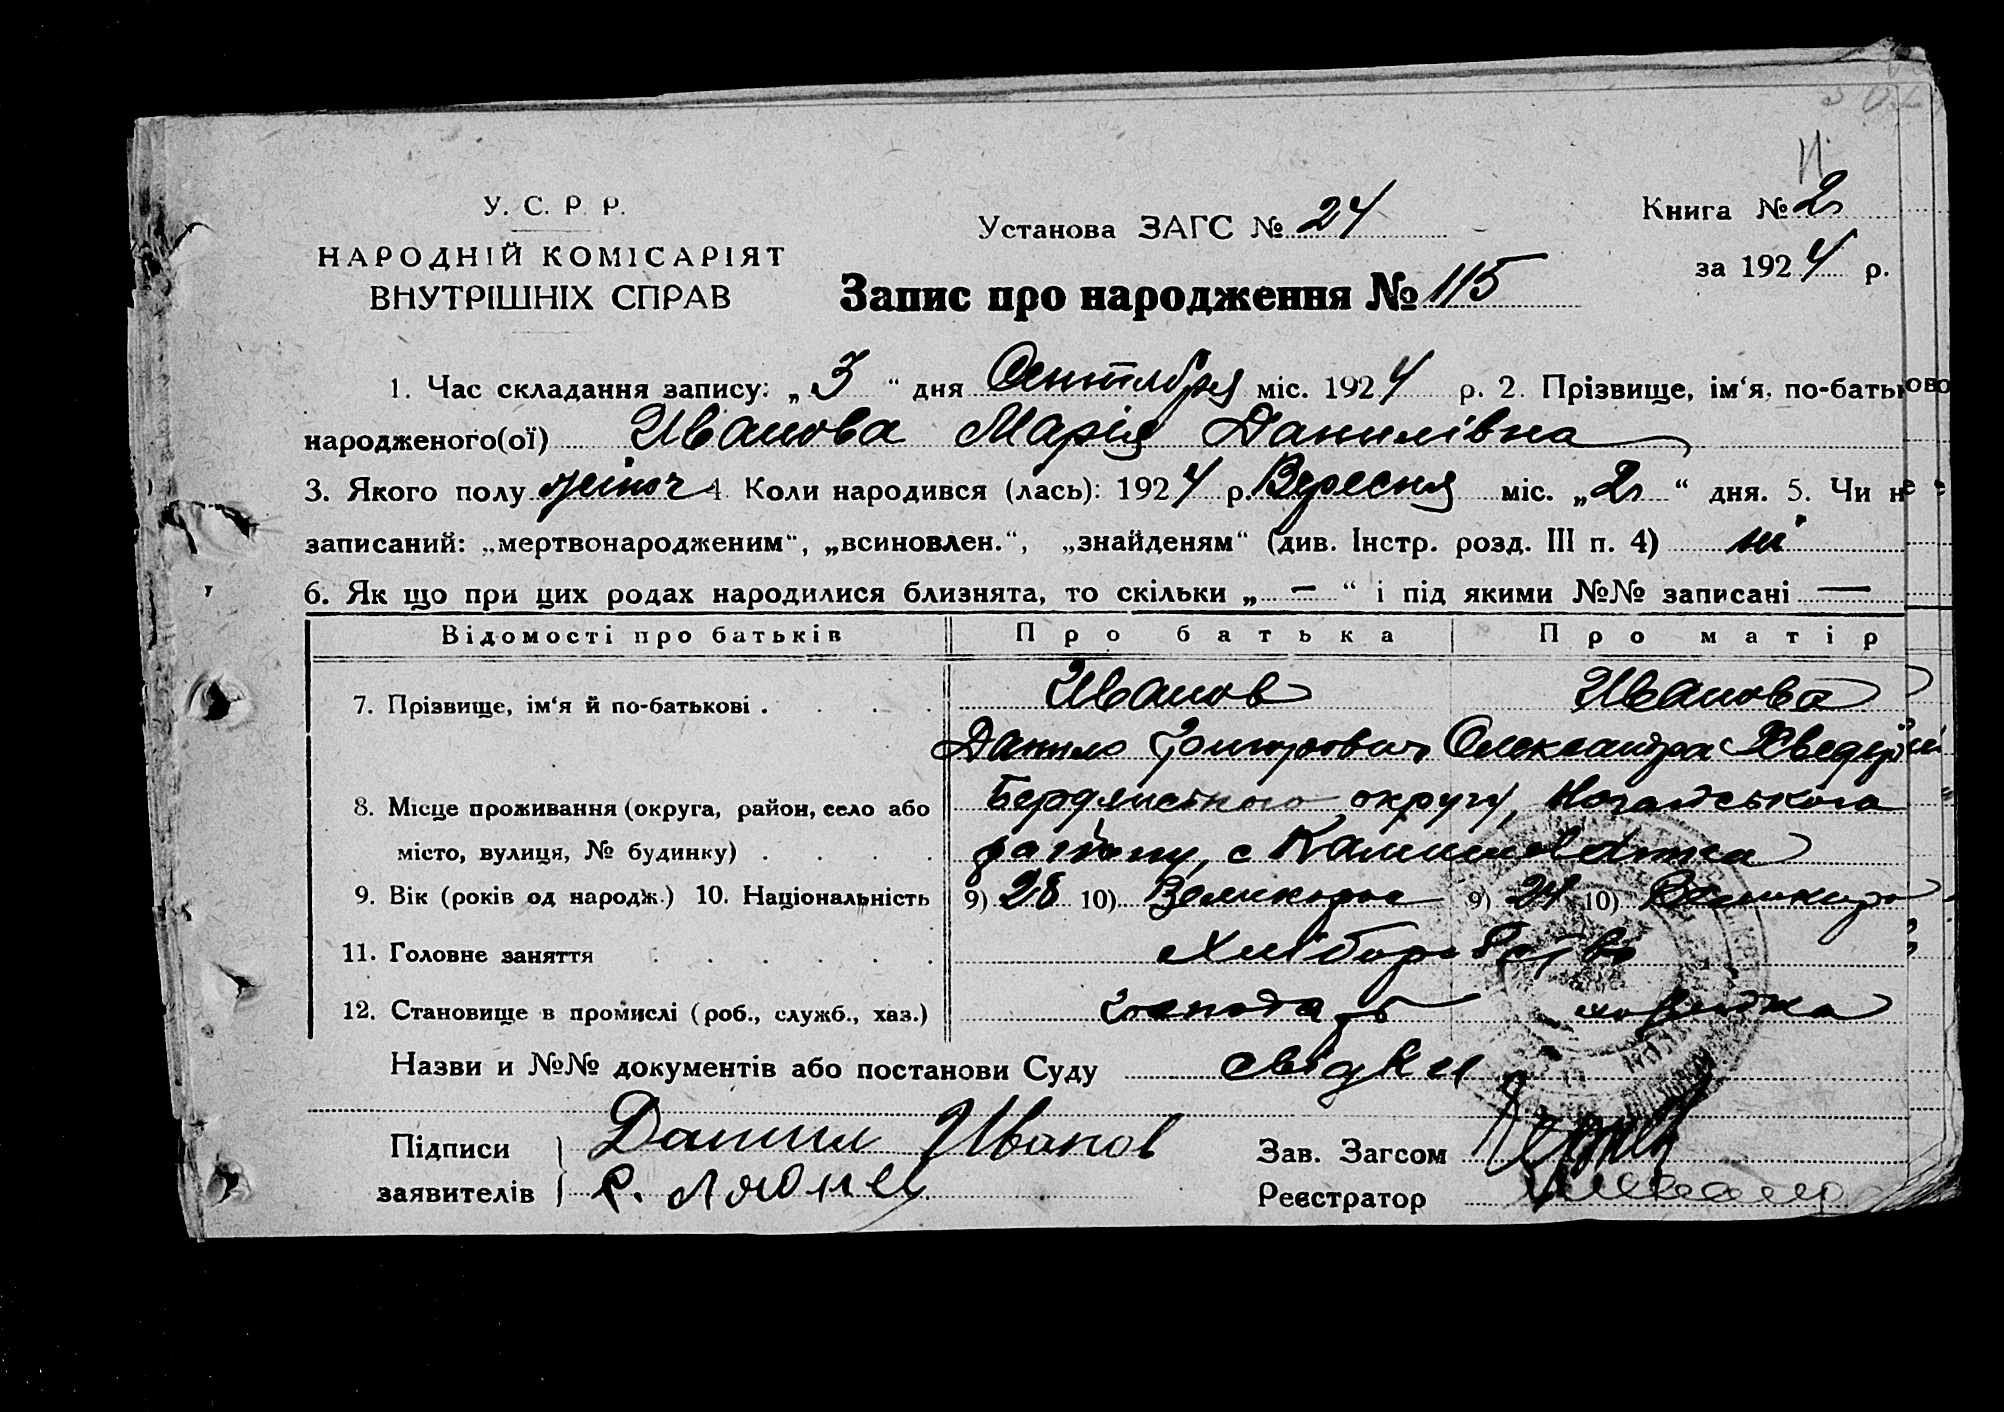 У. С. Р. Р.
НАРОДНІЙ КОМІСАРІЯТ
ВНУТРІШНІХ СПРАВ
Установа ЗАГС № 24
Книга № 2
за 1924 р.
Запис про народження № 115
1. Час складання запису: „ 3 “ дня Сентября міс. 1924 р. 2. Прізвище, ім‘я, по-батьково
народженого(ої) Иванова Марія Данилівна
3. Якого полу жіноч 4. Коли народився (лась): 1924 р. Вересня міс. „ 2 “ дня. 5. Чи не
записаний: „мертвонародженим“, „всиновлен.“, „знайденям“ (див. Інстр. розд. III п. 4) ні
6. Як що при цих родах народилися близнята, то скільки „ — “ і під якими №№ записані —
Відомості про батьків Про батька Про матір
7. Прізвище, ім‘я й по-батькові . . . . Иванов Иванова
Данило Григорович Олександра
8. Місце проживання (округа, район, село або Бердянського округу, Ногайського
місто, вулиця, № будинку) . . . . району, с
9. Вік (років од народж.) 10. Національність 9) 28 10) Великорос 9) 24 10)
11. Головне заняття . . . . . . Хліборобство
12. Становище в промислі (роб., служб., хаз.) господарь
Назви и №№ документів або постанови Суду свідки
Підписи Данил Иванов Зав. Загсом
заявителів Реєстратор